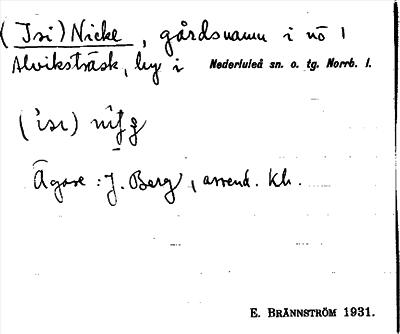 (Isi) Nicke, gårdsnamn i nö 1
Alviksträsk, by i Nederluleå sn. o. tg. Norrb. l.
(isi)
Ägare: J. Berg, arrend. kh.
E. BRÄNNSTRÖM 1931.